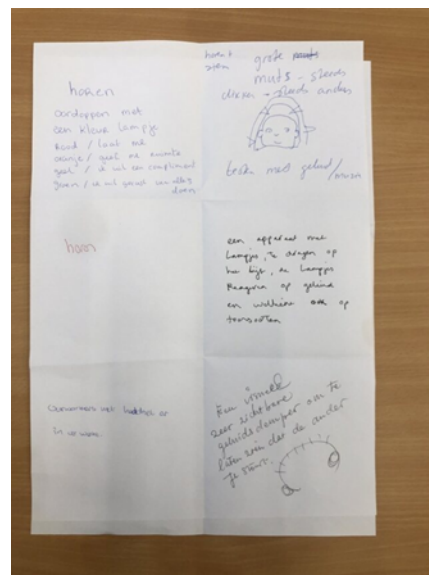 horen
oordoppen met
een kleur lampje
Rood / laat me
oranje / geef me aandacht
geel / ik wil een compliment
groen / ik wil graag van alles
doen
horen +
zien
grote muts
muts - steeds
dikker + steeds anders
testen met geluid/
muziek
horen
een apparaat met
lampjes, te dragen op
het lijf, de lampjes
Reageren op geluid
en wellicht ook op
toonsoorten
Oorwarmers met
er
in
Een
zeer zichtbare
geluidsdemper om te
laten zien dat de ander
je stoort.